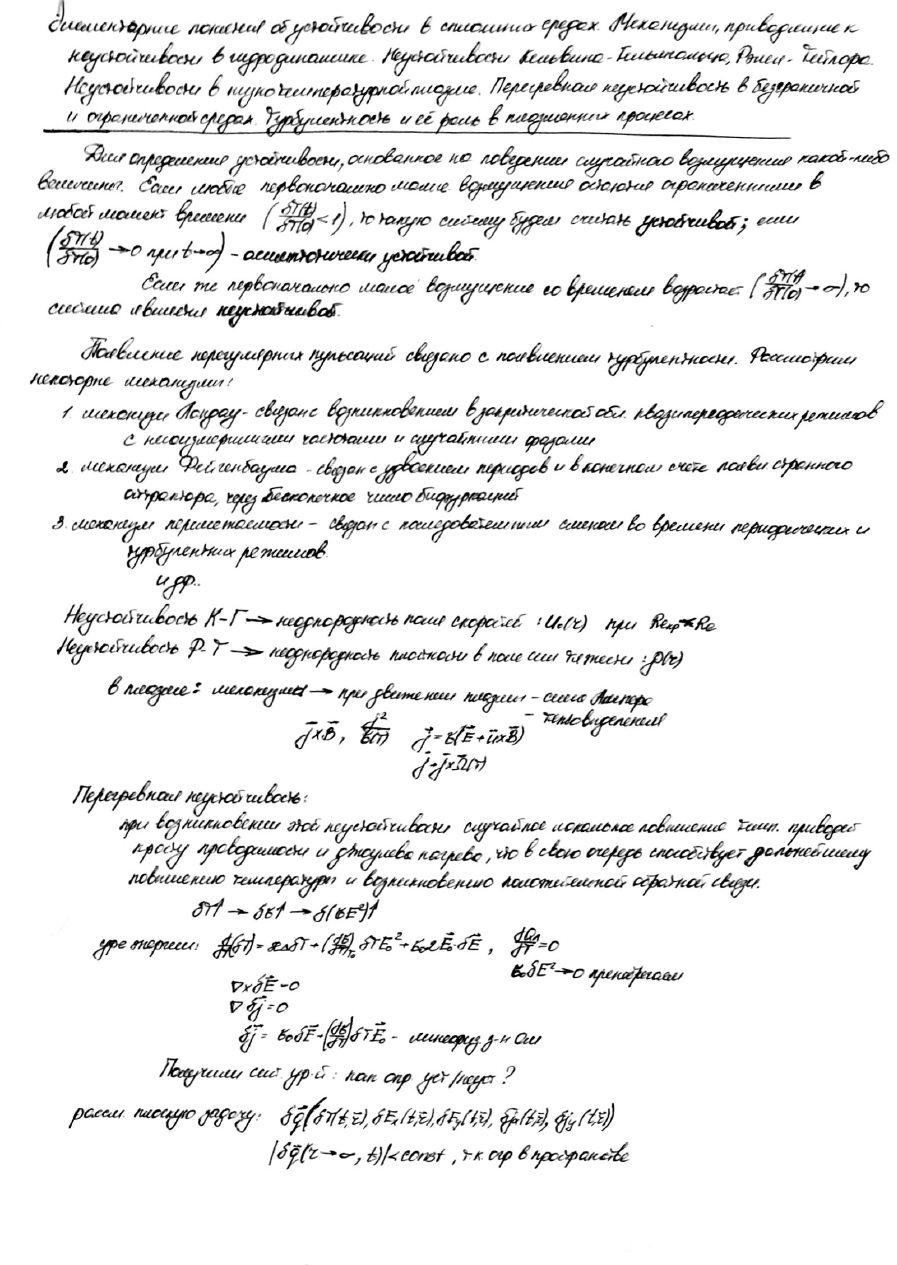 Элементарные понятия об устойчивости в сплошных средах. Механизмы, приводящие к
неустойчивости в гидродинамике. Неустойчивости Кельвина-Гельмгольца, Рэлея-Тейлора.
Неустойчивости в низкотемпературной плазме. Перегревная неустойчивость в безграничной
и ограниченной средах. Турбулентность и её роль в плазменных процессах.
Дим определение устойчивости, основанное на поведении случайного возмущения какой-либо
величины. Если любые первоначально малые возмущения остаются ограниченными в
любой момент времени (δT(t)/δT(0) < 1), то такую систему будем считать устойчивой; если
(δT(t)/δT(0) → 0 при t→∞) - асимптотически устойчивой.
Если же первоначально малое возмущение со временем возрастает (δT(t)/δT(0) → ∞), то
система является неустойчивой.
Появление нерегулярных пульсаций связано с появлением турбулентности. Рассмотрим
некоторые механизмы:
1. механизм Ландау - связан с возникновением в закритической обл. квазипериодических режимов
с несоизмеримыми частотами и случайными фазами
2. механизм Фейгенбаума - связан с удвоением периодов и в конечном счете появл странного
аттрактора, через бесконечное число бифуркаций
3. механизм перемежаемости - связан с последовательным сменом во времени периодических и
турбулентных режимов.
и др..
Неустойчивость К-Г → неоднородность поля скоростей : U₀(r) при Reкр < Re
Неустойчивость Р-Т → неоднородность плотности в поле сил тяжести : ρ(r)
в плазме: механизмы → при движении плазмы - сила Ампера
- тепловыделения
j⃗×B⃗, j²/σ(T) j⃗=σ(E⃗+u⃗×B⃗)
Перегревная неустойчивость:
при возникновении этой неустойчивости случайное локальное повышение темп. приводит
к росту проводимости и джоулева нагрева, что в свою очередь способствует дальнейшему
повышению температуры и возникновению положительной обратной связи.
δT↑ → δσ↑ → δ(σE²)↑
ур-е энергии: d/dt(δT) = æΔδT + (dσ/dT)T₀ δTE₀² + σ₀2E⃗₀·δE⃗ ,
σ₀δE²→0 пренебрегаем
∇×δE⃗=0
∇δj⃗=0
δj⃗ = σ₀δE⃗+(dσ/dT)δTE⃗₀ - линеариз. з-н Ом
Получили сист. ур-й : как опр уст/неуст ?
рассм. плоскую задачу: δq⃗(δT(t,r⃗), δEx(t,r⃗), δEy(t,r⃗), δjx(t,r⃗), δjy(t,r⃗))
|δq⃗(r→∞, t)|<const , т.к огр в пространстве